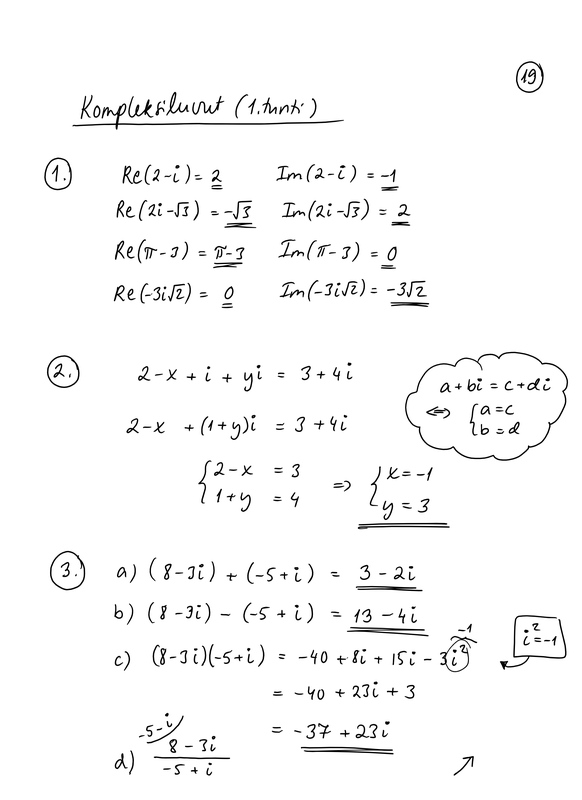 19
Kompleksiluvut (1. tunti)
1. Re(2-i) = 2 Im(2-i) = -1
Re(2i-√3) = -√3 Im(2i-√3) = 2
Re(π-3) = π-3 Im(π-3) = 0
Re(-3i√2) = 0 Im(-3i√2) = -3√2
2. 2-x + i + yi = 3+4i
2-x + (1+y)i = 3+4i
{2-x = 3 => {x = -1
1+y = 4 y = 3
a+bi = c+di
<=> {a=c
b=d
3. a) (8-3i) + (-5+i) = 3-2i
b) (8-3i) - (-5+i) = 13-4i
c) (8-3i)(-5+i) = -40 + 8i + 15i - 3i²
-1
i² = -1
= -40 + 23i + 3
= -37 + 23i
-5-i)
d) 8-3i
-5+i